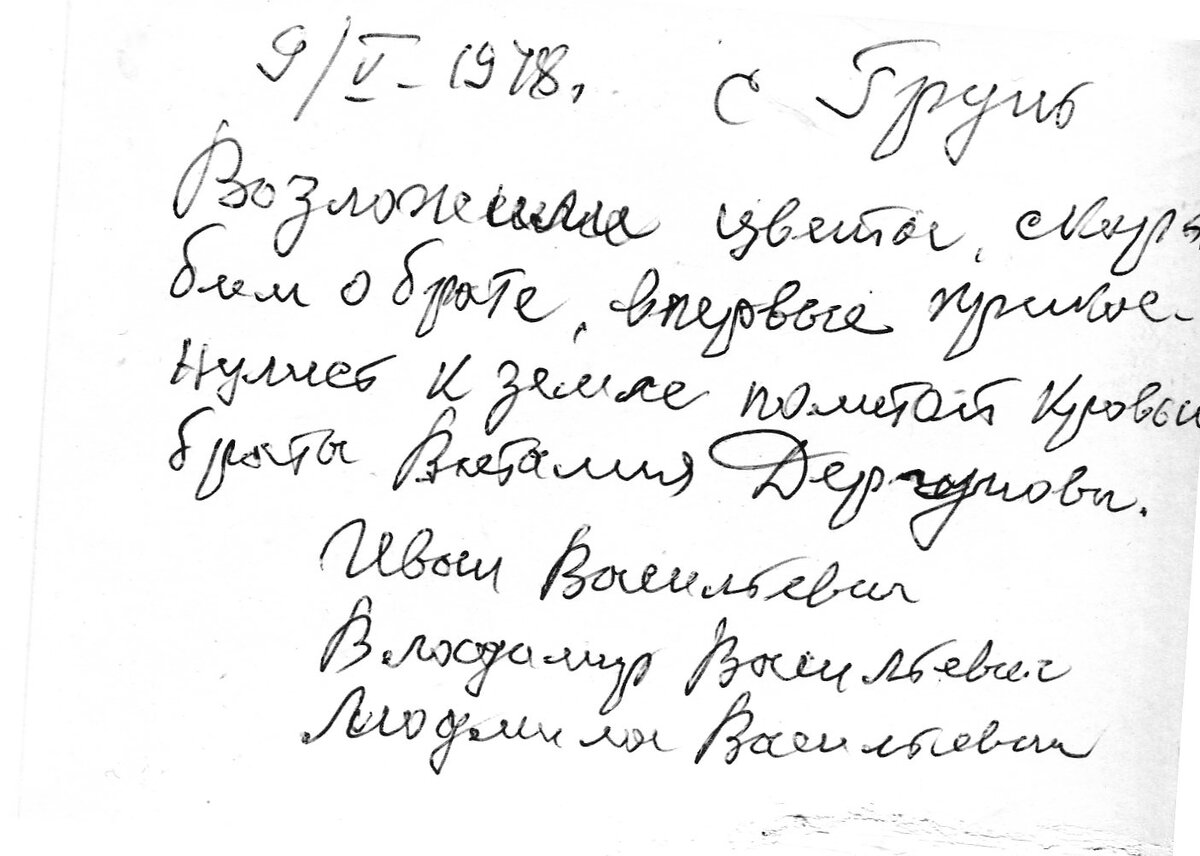 9/V-1978. с Грунь
Возложили цветы, скор
бим о брате, впервые прикос-
нулись к земле политой кровью
брата Виталия Дергунова.
Иван Васильевич
Владимир Васильевич
Людмила Васильевна